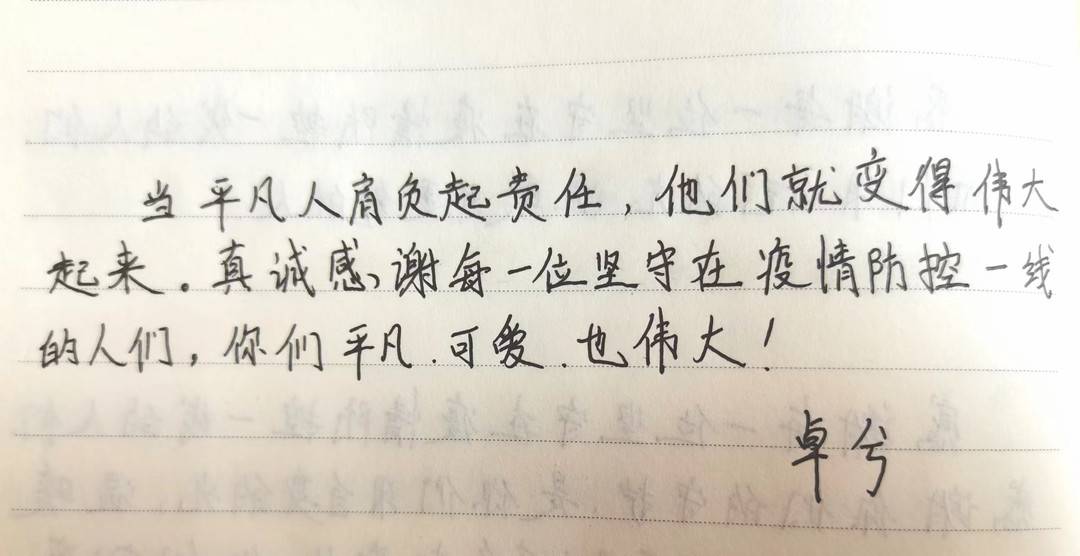 当平凡人肩负起责任，他们就变得伟大
起来。真诚感谢每一位坚守在疫情防控一线
的人们，你们平凡.可爱.也伟大！
卓兮